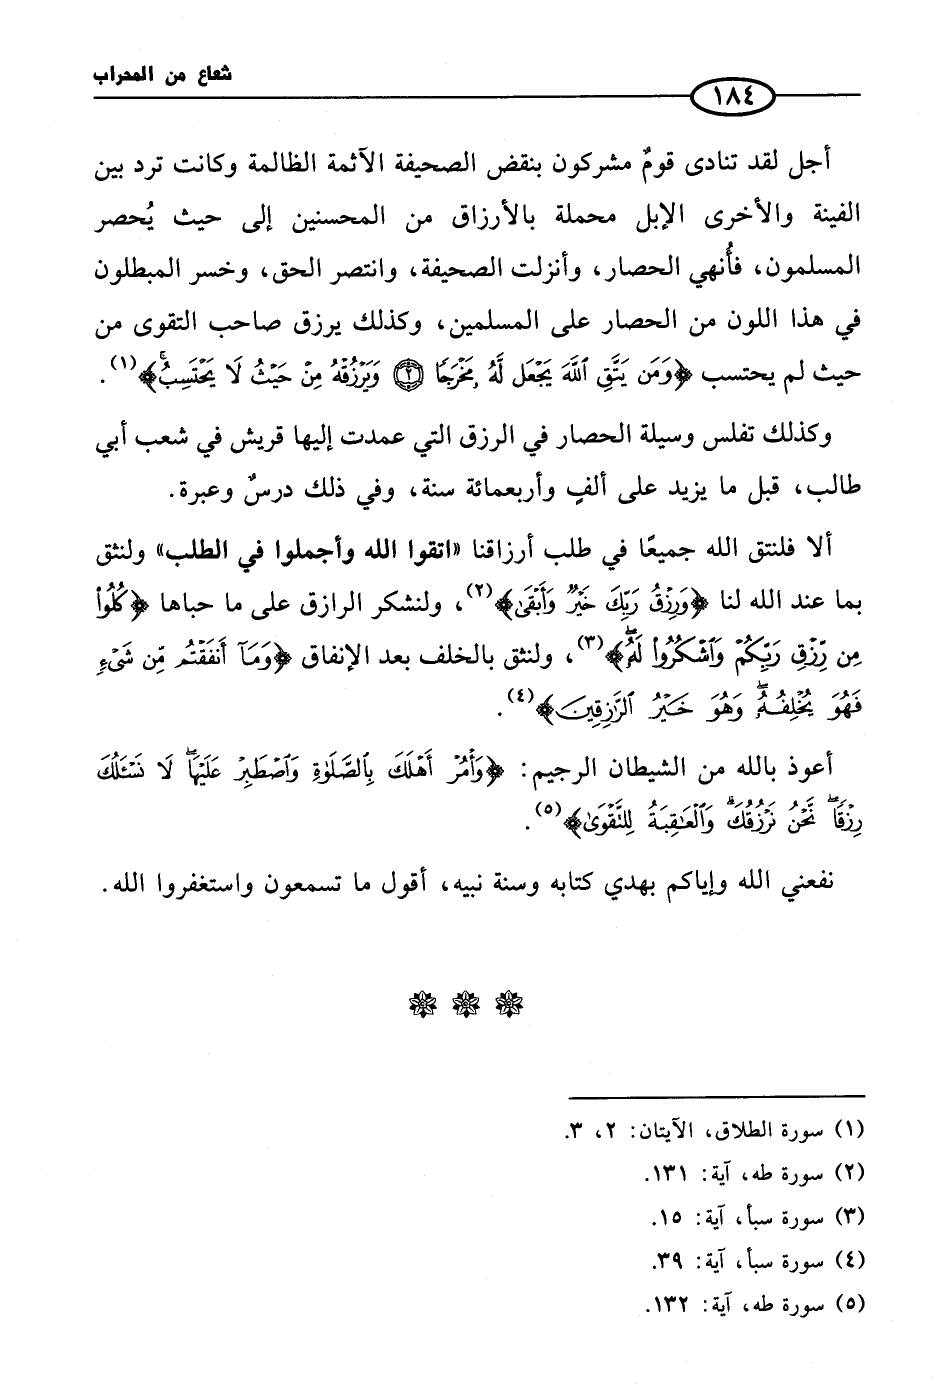 شعاع من المحراب
١٨٤
أجل لقد تنادى قومٌ مشركون بنقض الصحيفة الآثمة الظالمة وكانت ترد بين
الفينة والأخرى الإبل محملة بالأرزاق من المحسنين إلى حيث يُحصر
المسلمون، فأُنهي الحصار، وأنزلت الصحيفة، وانتصر الحق، وخسر المبطلون
في هذا اللون من الحصار على المسلمين، وكذلك يرزق صاحب التقوى من
حيث لم يحتسب ﴿وَمَن يَتَّقِ ٱللَّهَ يَجْعَل لَّهُۥ مَخْرَجًا ٢ وَيَرْزُقْهُ مِنْ حَيْثُ لَا يَحْتَسِبُۚ﴾(١).
وكذلك تفلس وسيلة الحصار في الرزق التي عمدت إليها قريش في شعب أبي
طالب، قبل ما يزيد على ألفٍ وأربعمائة سنة، وفي ذلك درسٌ وعبرة.
ألا فلنتق الله جميعًا في طلب أرزاقنا «اتقوا الله وأجملوا في الطلب» ولنثق
بما عند الله لنا ﴿وَرِزْقُ رَبِّكَ خَيْرٌ وَأَبْقَىٰ﴾(٢)، ولنشكر الرازق على ما حباها ﴿كُلُوا۟
مِن رِّزْقِ رَبِّكُمْ وَٱشْكُرُوا۟ لَهُۥۚ﴾(٣)، ولنثق بالخلف بعد الإنفاق ﴿وَمَآ أَنفَقْتُم مِّن شَىْءٍ
فَهُوَ يُخْلِفُهُۥۖ وَهُوَ خَيْرُ ٱلرَّٰزِقِينَ﴾(٤).
أعوذ بالله من الشيطان الرجيم: ﴿وَأْمُرْ أَهْلَكَ بِٱلصَّلَوٰةِ وَٱصْطَبِرْ عَلَيْهَاۖ لَا نَسْـَٔلُكَ
رِزْقًاۖ نَّحْنُ نَرْزُقُكَۗ وَٱلْعَٰقِبَةُ لِلتَّقْوَىٰ﴾(٥).
نفعني الله وإياكم بهدي كتابه وسنة نبيه، أقول ما تسمعون واستغفروا الله.
(١) سورة الطلاق، الآيتان: ٢، ٣.
(٢) سورة طه، آية: ١٣١.
(٣) سورة سبأ، آية: ١٥.
(٤) سورة سبأ، آية: ٣٩.
(٥) سورة طه، آية: ١٣٢.